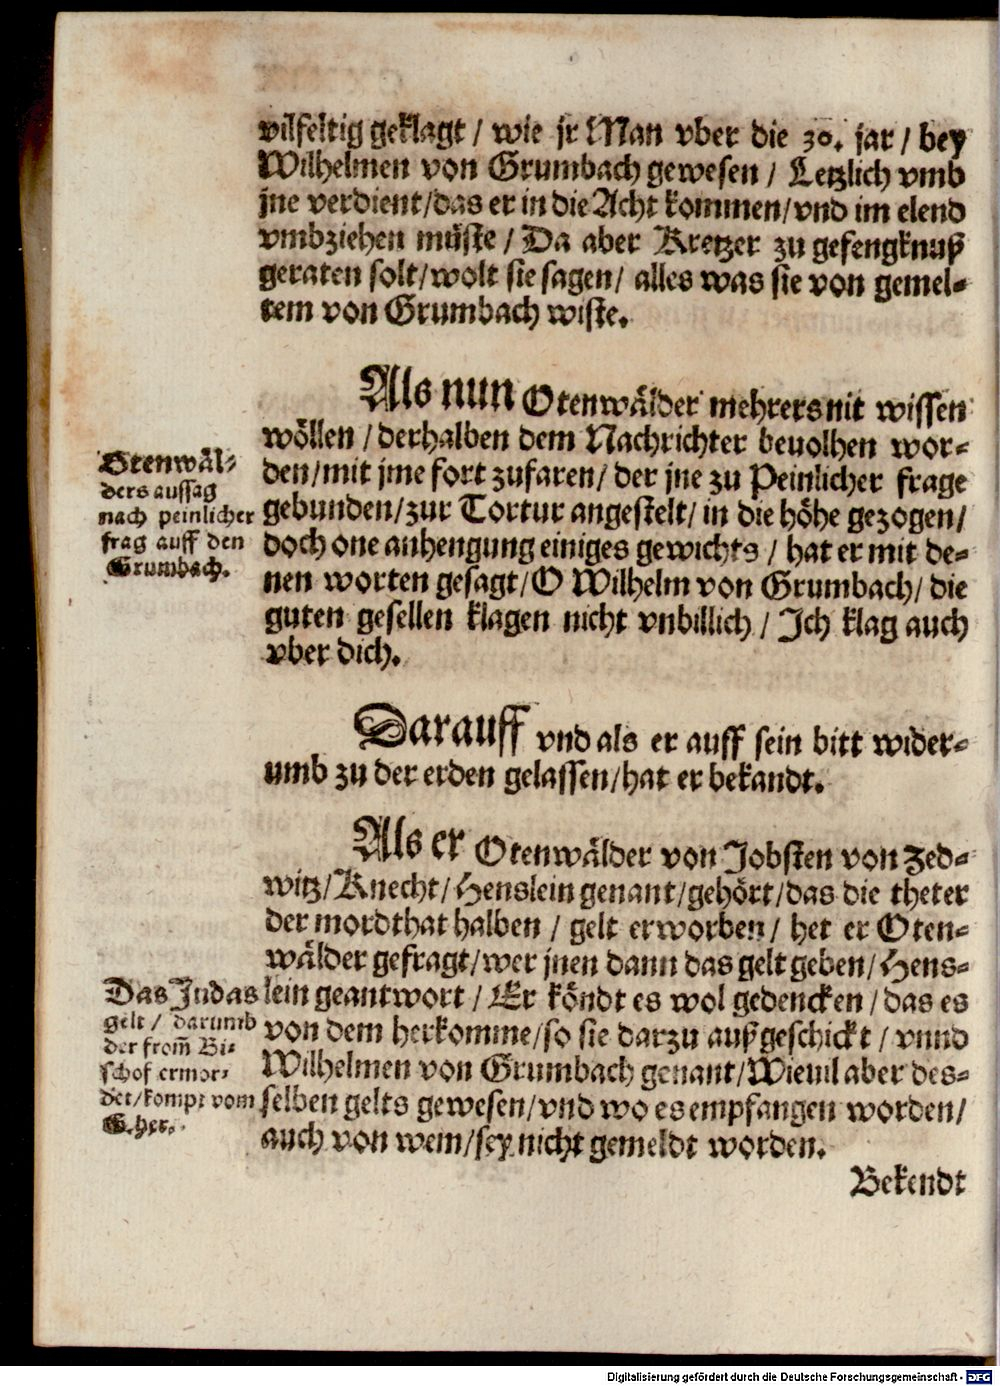 vilfeltig geklagt / wie jr Man vber die 30. jar / bey
Wilhelmen von Grumbach gewesen / Letzlich vmb
jne verdient/das er in die Acht kommen/vnd im elend
vmbziehen müste / Da aber Kretzer zu gefengknuß
geraten solt/wolt sie sagen/ alles was sie von gemel-
tem von Grumbach wiste.
Als nun Otenwälder mehrers nit wissen
wöllen / derhalben dem Nachrichter beuolhen wor-
den/mit jme fort zufaren/ der jne zu Peinlicher frage
gebunden/zur Tortur angestelt/ in die höhe gezogen/
doch one anhengung einiges gewichts / hat er mit de-
nen worten gesagt/O Wilhelm von Grumbach/ die
guten gesellen klagen nicht vnbillich / Ich klag auch
vber dich.
Otenwäl-
ders aussag
nach peinlicher
frag auff den
Grumbach.
Darauff vnd als er auff sein bitt wider-
umb zu der erden gelassen/hat er bekandt.
Als er Otenwälder von Jobsten von Zed-
witz/Knecht/Henslein genant/gehört/das die theter
der mordthat halben / gelt erworben/ het er Oten-
wälder gefragt/wer jnen dann das gelt geben/Hens-
lein geantwort / Er köndt es wol gedencken / das es
von dem herkomme/so sie darzu außgeschickt / vnnd
Wilhelmen von Grumbach genant/Wieuil aber des-
selben gelts gewesen/vnd wo es empfangen worden/
auch von wem/sey nicht gemeldt worden.
Das Judas
gelt / darumb
der from̃ Bi-
schof ermor-
det/kompt vom
G. her.
Bekendt
Digitalisierung gefördert durch die Deutsche Forschungsgemeinschaft - DFG